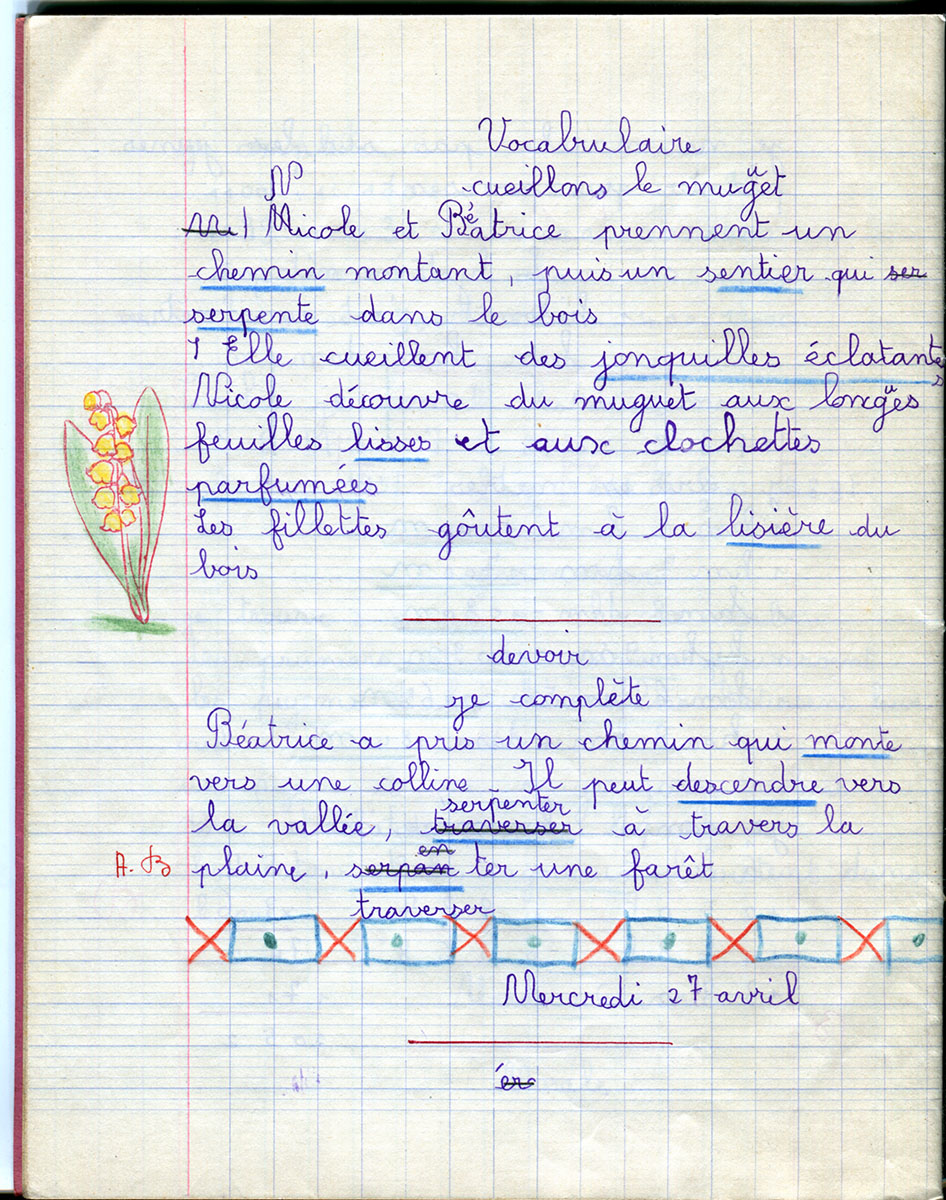 Vocabulaire
N cueillons le muguet
Nicole et Béatrice prennent un
chemin montant, puis un sentier qui ser
serpente dans le bois
Elle cueillent des jonquilles éclatantes
Nicole découvre du muguet aux longues
feuilles lisses et aux clochettes
parfumées
Les fillettes goûtent à la lisière du
bois
devoir
je complète
Béatrice a pris un chemin qui monte
vers une colline. Il peut descendre vers
serpenter
la vallée, traverser à travers la
en
A. B plaine, serpan ter une farêt
traverser
Mercredi 27 avril
er